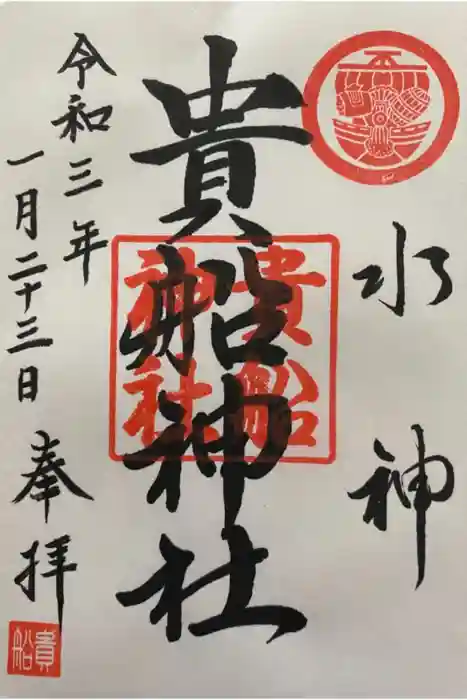 水神
貴船神社
貴船神社
令和三年
一月二十三日
奉拝
貴船